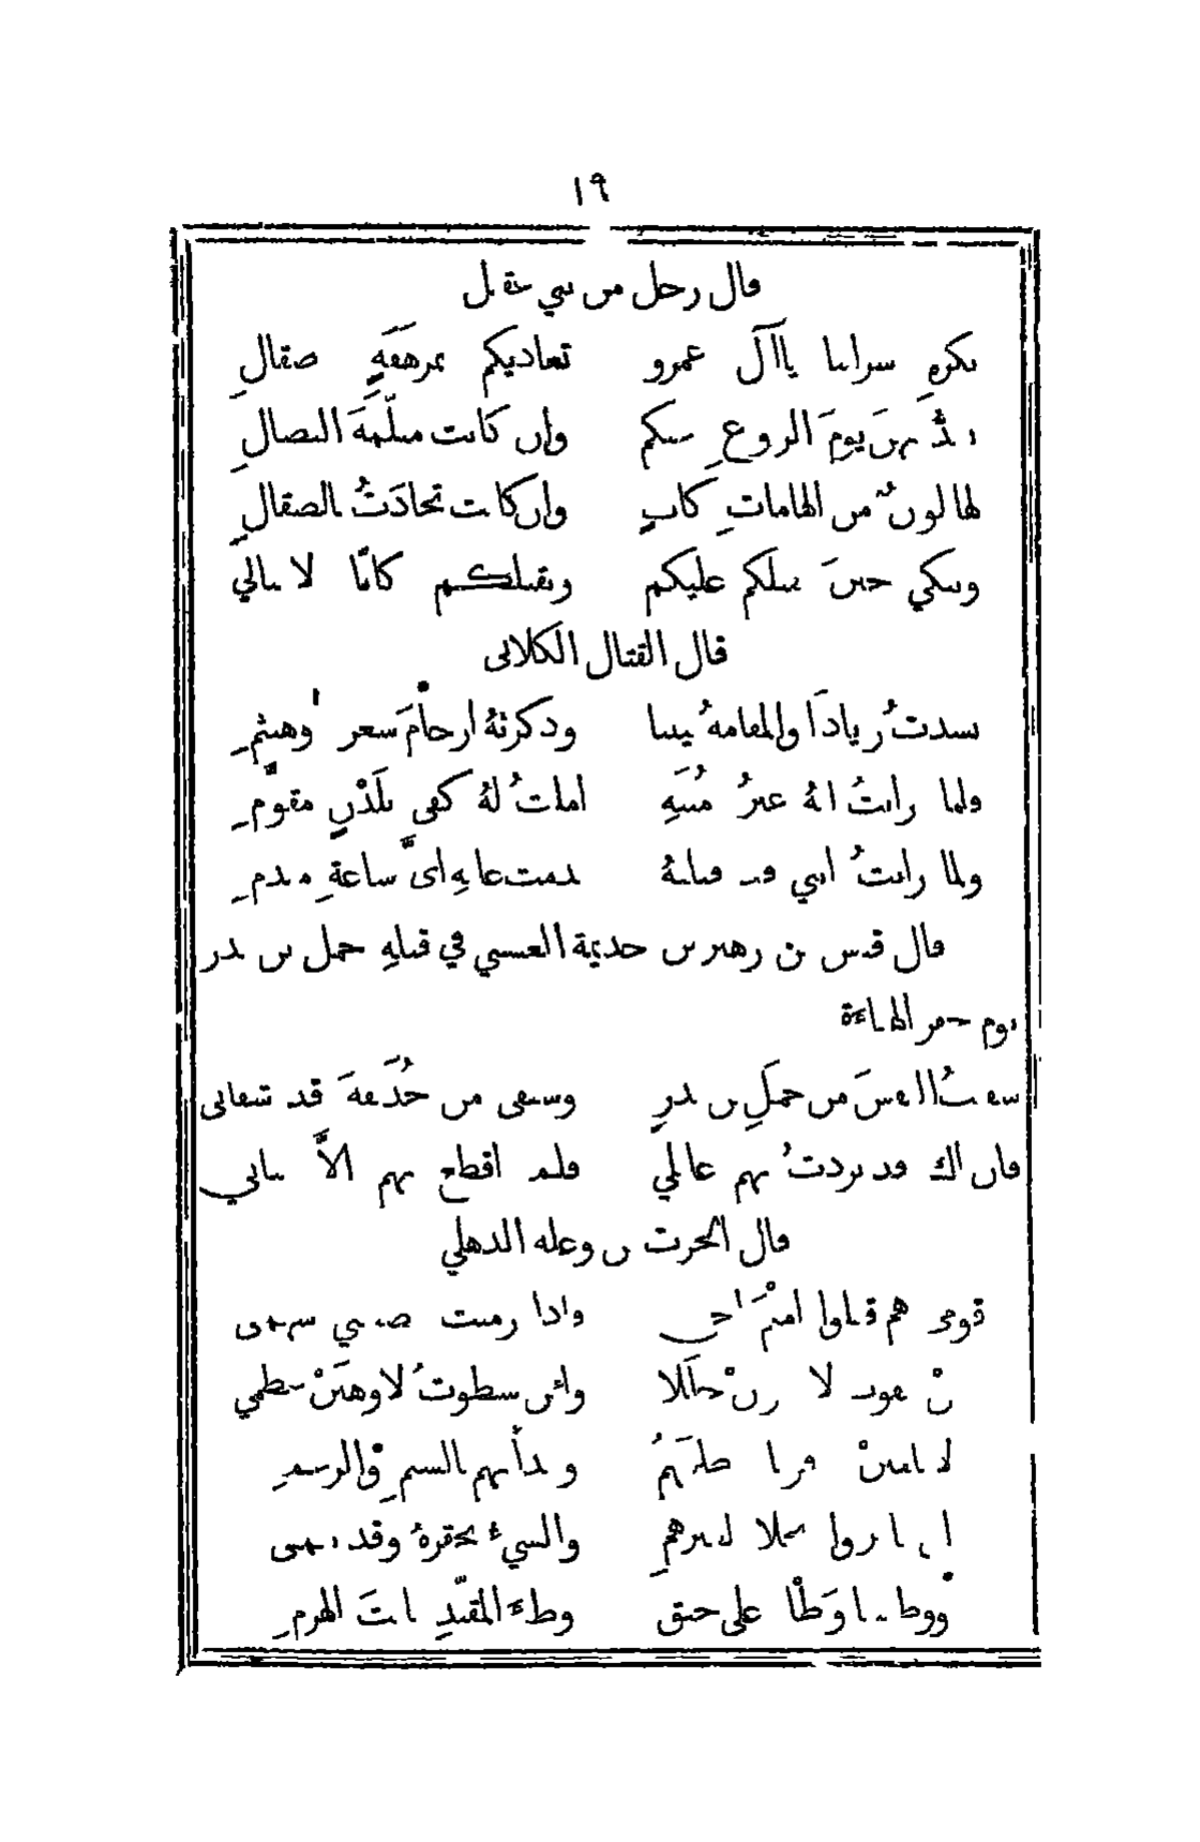 ١٩
قال رجل من بني عقيل
بكرهِ سراتنا يا آل عمرو تغاديكم بمرهفَةٍ صقالِ
يومَ الروعِ عنكم وإن كانت مثلّمةَ النصالِ
لها لونٌ من الهاماتِ كابٍ وإن كانت تحادَثُ بالصقالِ
ونبكي حينَ نقتلكم عليكم ونقتلكم كأنّا لا نبالي
قال القتال الكلابي
نشدتُ زيادًا والمقامةُ بيننا وذكرتهُ أرحامَ سعر وهيثمِ
ولما رأيتُ انهُ غيرُ مُنتَهِ أملتُ لهُ كفي بلَدْنٍ مقوّمِ
ولما رأيتُ انني قد قتلتهُ ندمت عليهِ أيَّ ساعةِ مندمِ
قال قيس بن زهير بن جذيمة العبسي في قتلهِ حمل بن بدر
يوم جفر الهباءة
شفيتُ النفسَ من حملِ بن بدرٍ وسيفي من حُذَيفةَ قد شفاني
فإن اك قد بردتُ بهم غليلي فلم اقطع بهم الاَّ بناني
قال الحرث بن وعلة الذهلي
قومي هم قتلوا اميْمَ اخي واذا رميت يصيبني سهمي
عفوت لا جللا وائن سطوتُ لاوهنَنْ عظمي
لا تأمننْ قوما ظلمتَهُمُ وبدأتهم بالشتمِ والرغمِ
ان يأبروا نخلا لغيرهمِ والشيءُ تحقرهُ وقد ينمى
ووطئتنا وَطْأً على حنق وطءَ المقيّدِ نابتَ الهرمِ